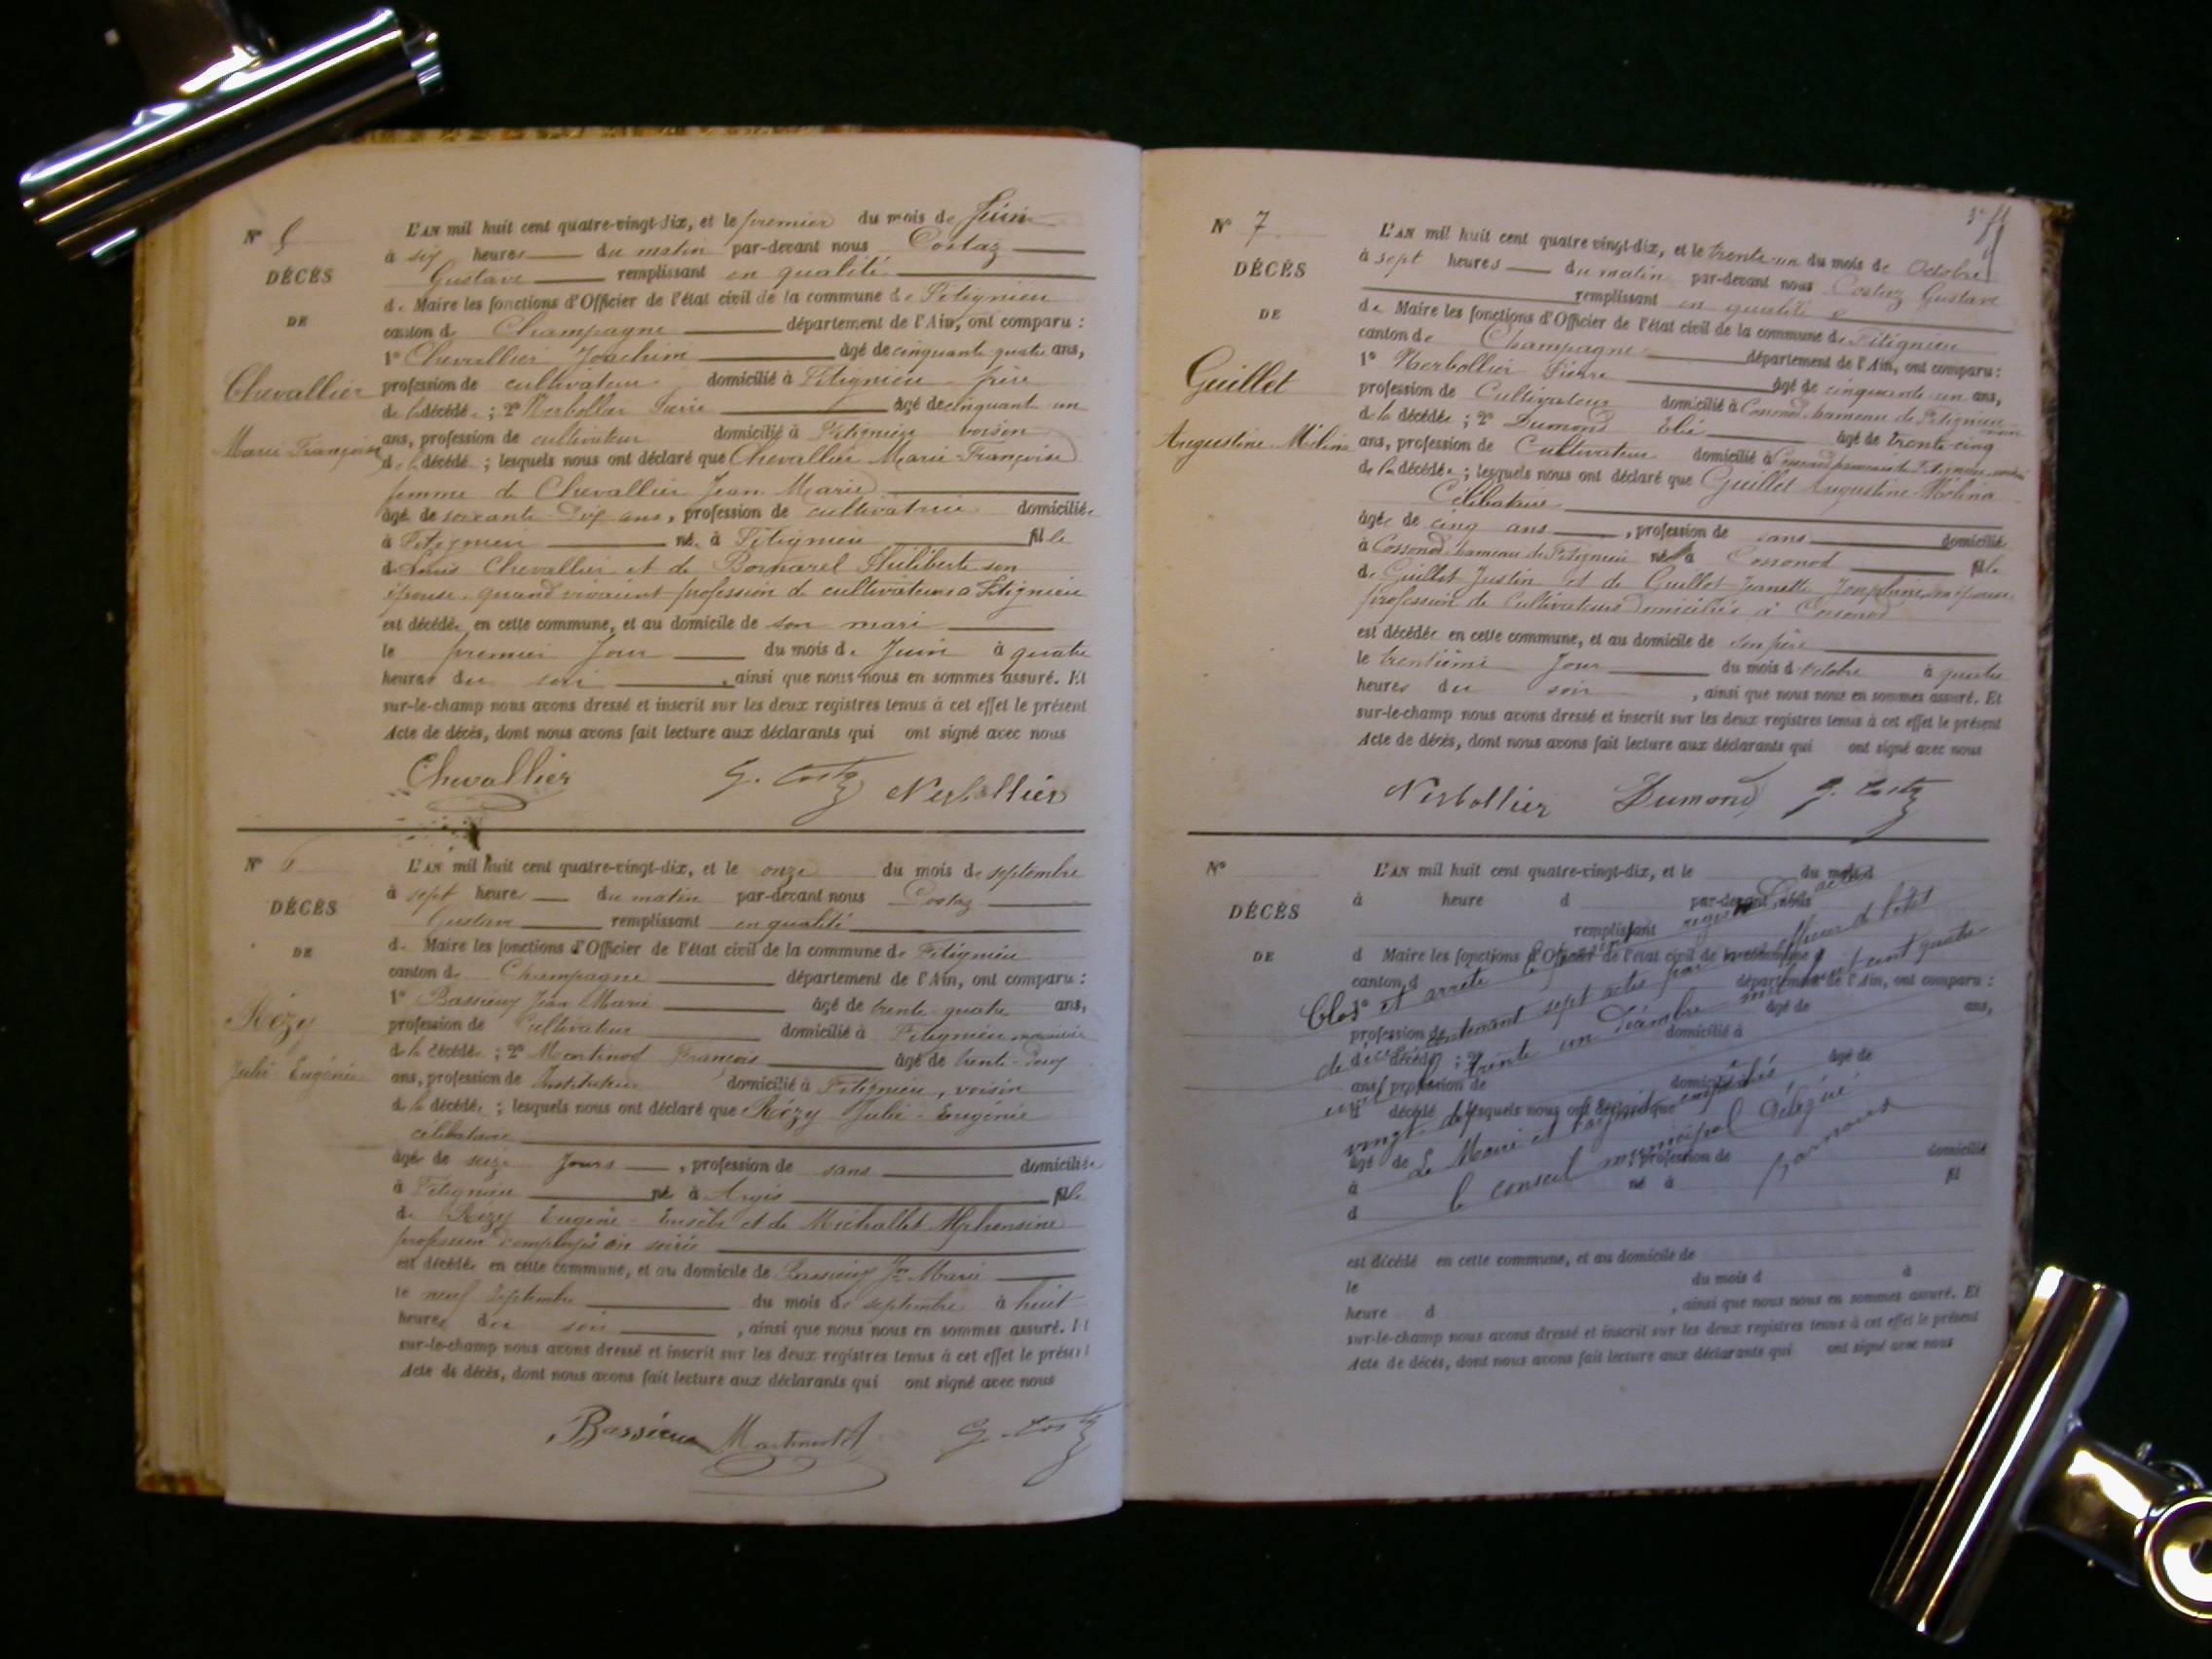 N° 5
DÉCÈS
DE
Chevallier
Marie Françoise
L'AN mil huit cent quatre-vingt-dix, et le premier du mois de Juin
à six heures du matin par-devant nous Costaz
Gustave remplissant en qualité
de Maire les fonctions d'Officier de l'état civil de la commune de Pitignieu
canton de Champagne département de l'Ain, ont comparu :
1° Chevallier Joachim âgé de cinquante quatre ans,
profession de cultivateur domicilié à Pitignieu frère
de la décédée ; 2° Nerbollier Pierre âgé de cinquant un
ans, profession de cultivateur domicilié à Pitignieu voisin
de la décédé ; lesquels nous ont déclaré que Chevallier Marie Françoise
femme de Chevallier Jean Marie
âgé de soixante-dix ans, profession de cultivatrice domiciliée
à Pitignieu née à Pitignieu fille
de Louis Chevallier et de Bornarel Philiberte son
épouse, quand vivaient profession de cultivateurs a Pitignieu
est décédée en cette commune, et au domicile de son mari
le premier Jour du mois de Juin à quatre
heures du soir, ainsi que nous nous en sommes assuré. Et
sur-le-champ nous avons dressé et inscrit sur les deux registres tenus à cet effet le présent
Acte de décès, dont nous avons fait lecture aux déclarants qui ont signé avec nous
Chevallier G. Costaz Nerbollier
N° 6
DÉCÈS
DE
Rézy
Julie Eugénie
L'AN mil huit cent quatre-vingt-dix, et le onze du mois de septembre
à sept heures du matin par-devant nous Costaz
Gustave remplissant en qualité
de Maire les fonctions d'Officier de l'état civil de la commune de Pitignieu
canton de Champagne département de l'Ain, ont comparu :
1° Bassieux Jean Marie âgé de trente quatre ans,
profession de Cultivateur domicilié à Pitignieu
de la décédé ; 2° Martinod François âgé de trente-deux
ans, profession de Instituteur domicilié à Pitignieu, voisin
de la décédée ; lesquels nous ont déclaré que Rézy Julie-Eugénie
célibataire
âgé de seize Jours, profession de sans domiciliée
à Pitignieu née à Argis fille
de Rézy Eugène et de Michallet Alphonsine
profession d'employés en soirie
est décédée en cette commune, et au domicile de Bassieux Jn Marie
le neuf Septembre du mois de septembre à huit
heures du soir, ainsi que nous nous en sommes assuré. Et
sur-le-champ nous avons dressé et inscrit sur les deux registres tenus à cet effet le présent
Acte de décès, dont nous avons fait lecture aux déclarants qui ont signé avec nous
Bassieux Martinod G. Costaz
N° 7
DÉCÈS
DE
Guillet
Augustine Mélina
L'AN mil huit cent quatre-vingt-dix, et le trente-un du mois de Octobre
à sept heures du matin par-devant nous Costaz Gustave
remplissant en qualité
de Maire les fonctions d'Officier de l'état civil de la commune de Pitignieu
canton de Champagne département de l'Ain, ont comparu :
1° Nerbollier Pierre âgé de cinquante-un ans,
profession de Cultivateur domicilié à Cossonod hameau de Pitignieu
de la décédée ; 2° Dumond Elie âgé de trente-cinq
ans, profession de Cultivateur domicilié à Cossonod hameau de Pitignieu
de la décédée ; lesquels nous ont déclaré que Guillet Augustine-Mélina
Célibataire
âgée de cinq ans, profession de sans domicilié
à Cossonod hameau de Pitignieu née à Cossonod fille
de Guillet Justin et de Guillot Jeanette Josephine son épouse
profession de Cultivateurs domiciliés à Cossonod
est décédée en cette commune, et au domicile de son père
le trentième Jour du mois d'octobre à quatre
heures du soir, ainsi que nous nous en sommes assuré. Et
sur-le-champ nous avons dressé et inscrit sur les deux registres tenus à cet effet le présent
Acte de décès, dont nous avons fait lecture aux déclarants qui ont signé avec nous
Nerbollier Dumond G. Costaz
N°
DÉCÈS
DE
L'AN mil huit cent quatre-vingt-dix, et le du mois d
à heure d par-devant nous
remplissant
d Maire les fonctions d'Officier de l'état civil de la commune d
canton d département de l'Ain, ont comparu :
1° âgé de ans,
profession de domicilié à
d décédé ; 2° âgé de
ans, profession de domicilié à
d décédé ; lesquels nous ont déclaré que
âgé de , profession de domicilié
à né à fil
d
est décédé en cette commune, et au domicile de
le du mois d à
heure d , ainsi que nous nous en sommes assuré. Et
sur-le-champ nous avons dressé et inscrit sur les deux registres tenus à cet effet le présent
Acte de décès, dont nous avons fait lecture aux déclarants qui ont signé avec nous
Clos et arrêté le présent registre des actes
de décès contenant sept actes par officier de l'état
civil le trente un Décembre mil huit cent quatre
vingt-dix
Le Maire et l'adjoint empêchés
le conseil municipal Délégué